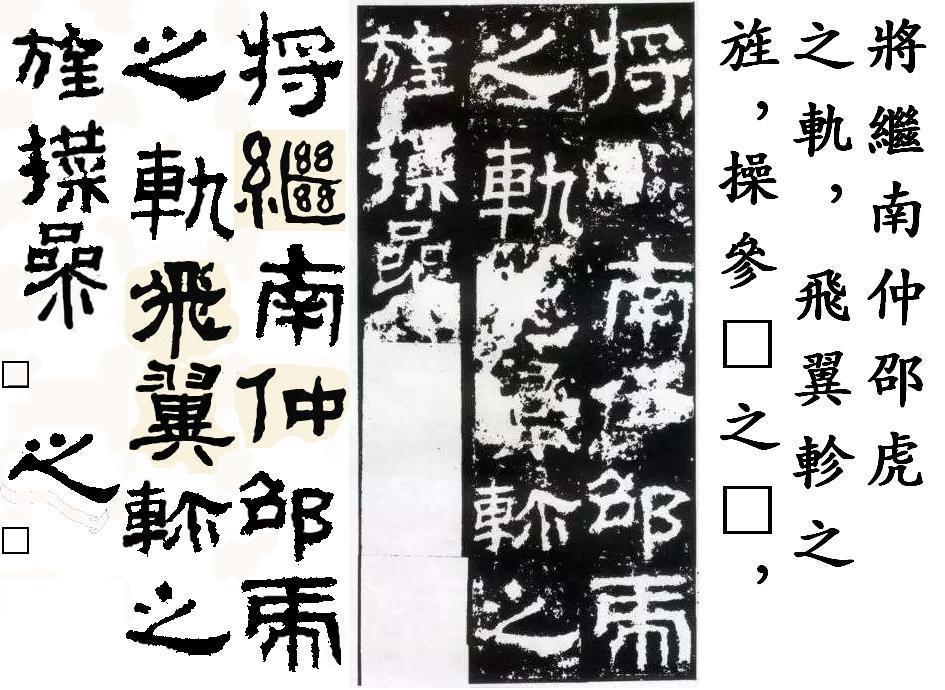 將繼南仲邵虎
之軌，飛翼軫之
旌，操參□之□，
將南仲邵虎
之軌軫之
旌操參
將繼南仲邵虎
之軌飛翼軫之
旌操參□之□